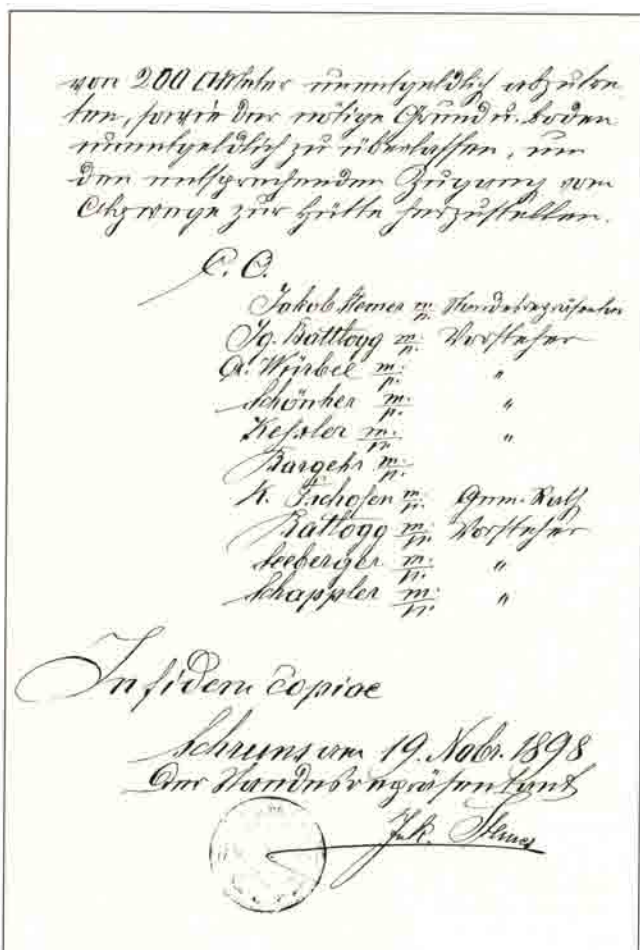 von 200 □Meter unentgeldlich abzutre-
ten, sowie der nötige Grund u. Boden
unentgeldlich zu überlassen, um
den entsprechenden Zugang vom
Alpwege zur Hütte herzustellen.
Jakob Stemer m/p. Standesrepräsentant
Ig. Battlogg m/p. Vorsteher
Würbel m/p. "
Schönher m/p. "
Kessler m/p. "
Bargehr m/p.
K. Tschofen m/p. Gem. Rath
Battlogg m/p. Vorsteher
Seeberger m/p. "
Schappler m/p. "
In fidem copiae
Schruns am 19. Nobr. 1898
Der Standesrepräsentant
Jak. Stemer